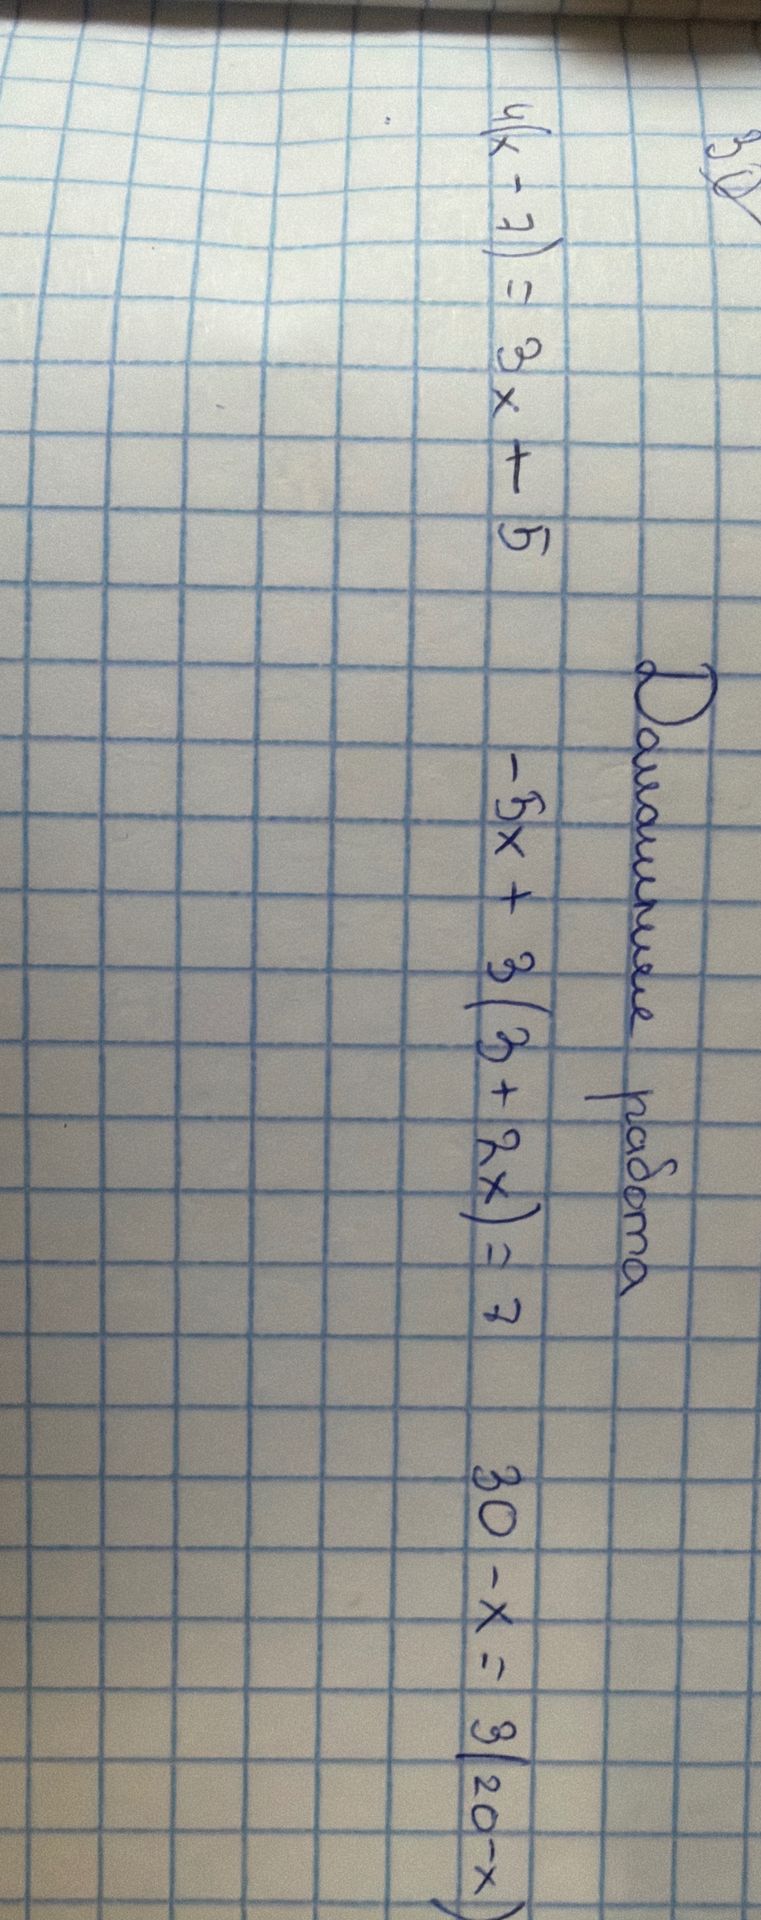 Домашняя работа
4(x - 7) = 3x + 5 -5x + 3(3 + 2x) = 7 30 - x = 3(20-x)